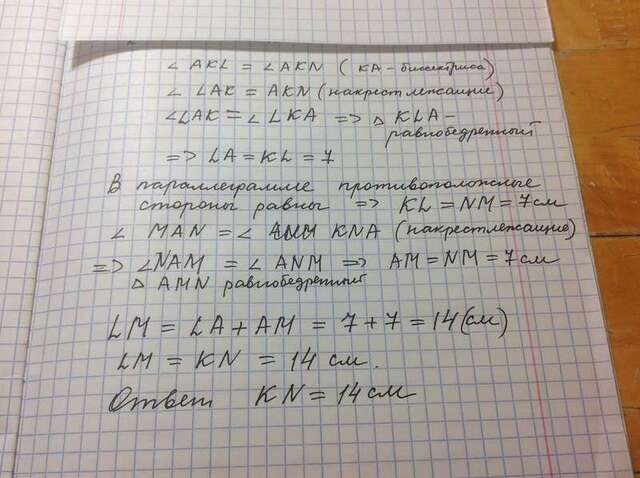 ∠ AKL = ∠AKN (KA - биссектриса)
∠ LAK = AKN (накрестлежащие)
∠LAK = ∠ LKA => △ KLA -
равнобедренный
=> LA = KL = 7
В параллеграмме противоположные
стороны равны => KL = NM = 7 см
∠ MAN = ∠ KNA (накрестлежащие)
=> ∠NAM = ∠ ANM => AM = NM = 7 см
△ AMN равнобедренный
LM = LA + AM = 7 + 7 = 14 (см)
LM = KN = 14 см.
Ответ KN = 14 см